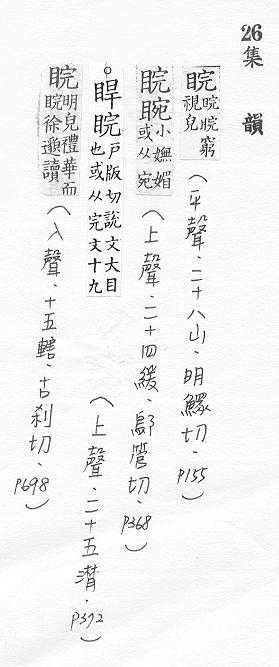 26集韻
睆睆睆窮視皃
（平聲．二十八山．明鰥切．P155）
睆䀨小嫵媚或从宛
（上聲．二十四緩．鄔管切．P368）
睅睆戶版切說文大目也或从完文十九
（上聲．二十五潸．P372）
睆明皃禮華而睆徐邈讀
（入聲．十五轄．古刹切．P698）